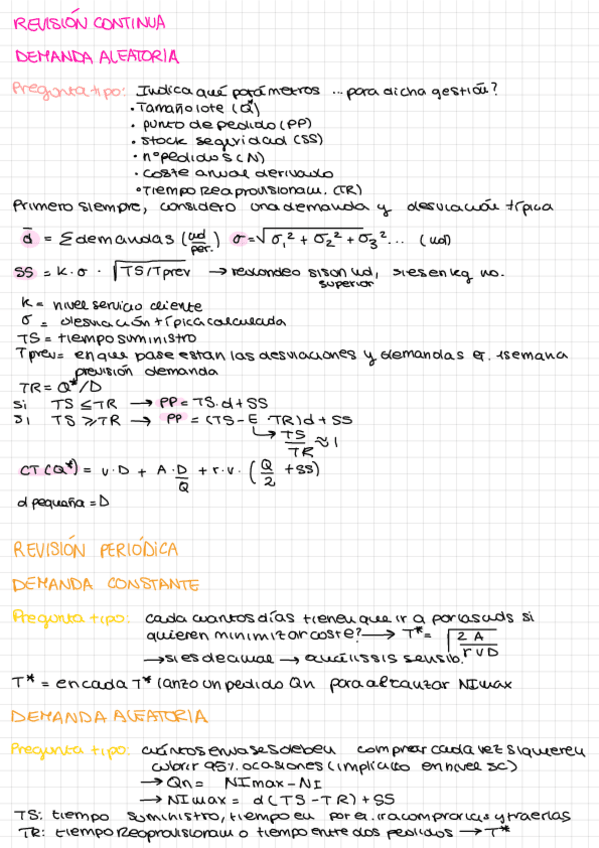 REVISIÓN CONTINUA
DEMANDA ALEATORIA
Pregunta tipo: Indica qué parámetros ... para dicha gestión?
• Tamaño lote (Q*)
• punto de pedido (PP)
• stock seguridad (SS)
• nº pedidos (N)
• coste anual derivado
• Tiempo Reaprovisionam. (TR)
Primero siempre, considero una demanda y desviación típica
d̄ = Σ demandas (ud/per.) σ = √σ₁² + σ₂² + σ₃² ... (ud)
SS = k · σ · √TS/Tprev → redondeo si son ud, si es en kg no.
superior
k = nivel servicio cliente
σ = desviación típica calculada
TS = tiempo suministro
Tprev = en que base estan las desviaciones y demandas ej. 1 semana
previsión demanda
TR = Q*/D
si TS ≤ TR → PP = TS · d + SS
si TS ≥ TR → PP = (TS - E · TR)d + SS
↳ TS/TR ≈ 1
CT (Q*) = v · D + A · D/Q + r · v · (Q/2 + SS)
d pequeña = D
REVISIÓN PERIÓDICA
DEMANDA CONSTANTE
Pregunta tipo: cada cuantos días tienen que ir a por las uds si
quieren minimizar coste? → T* = √2A/rvD
→ si es decimal → análissis sensib.
T* = en cada T* lanzo un pedido Qn para alcanzar NImax
DEMANDA ALEATORIA
Pregunta tipo: cuántos envases deben comprar cada vez si quieren
cubrir 95% ocasiones (implícito en nivel sc)
→ Qn = NImax - NI
→ NImax = d(TS - TR) + SS
TS: tiempo suministro, tiempo en por ej. ir a comprarlas y traerlas
TR: tiempo Reaprovisionam o tiempo entre dos pedidos → T*